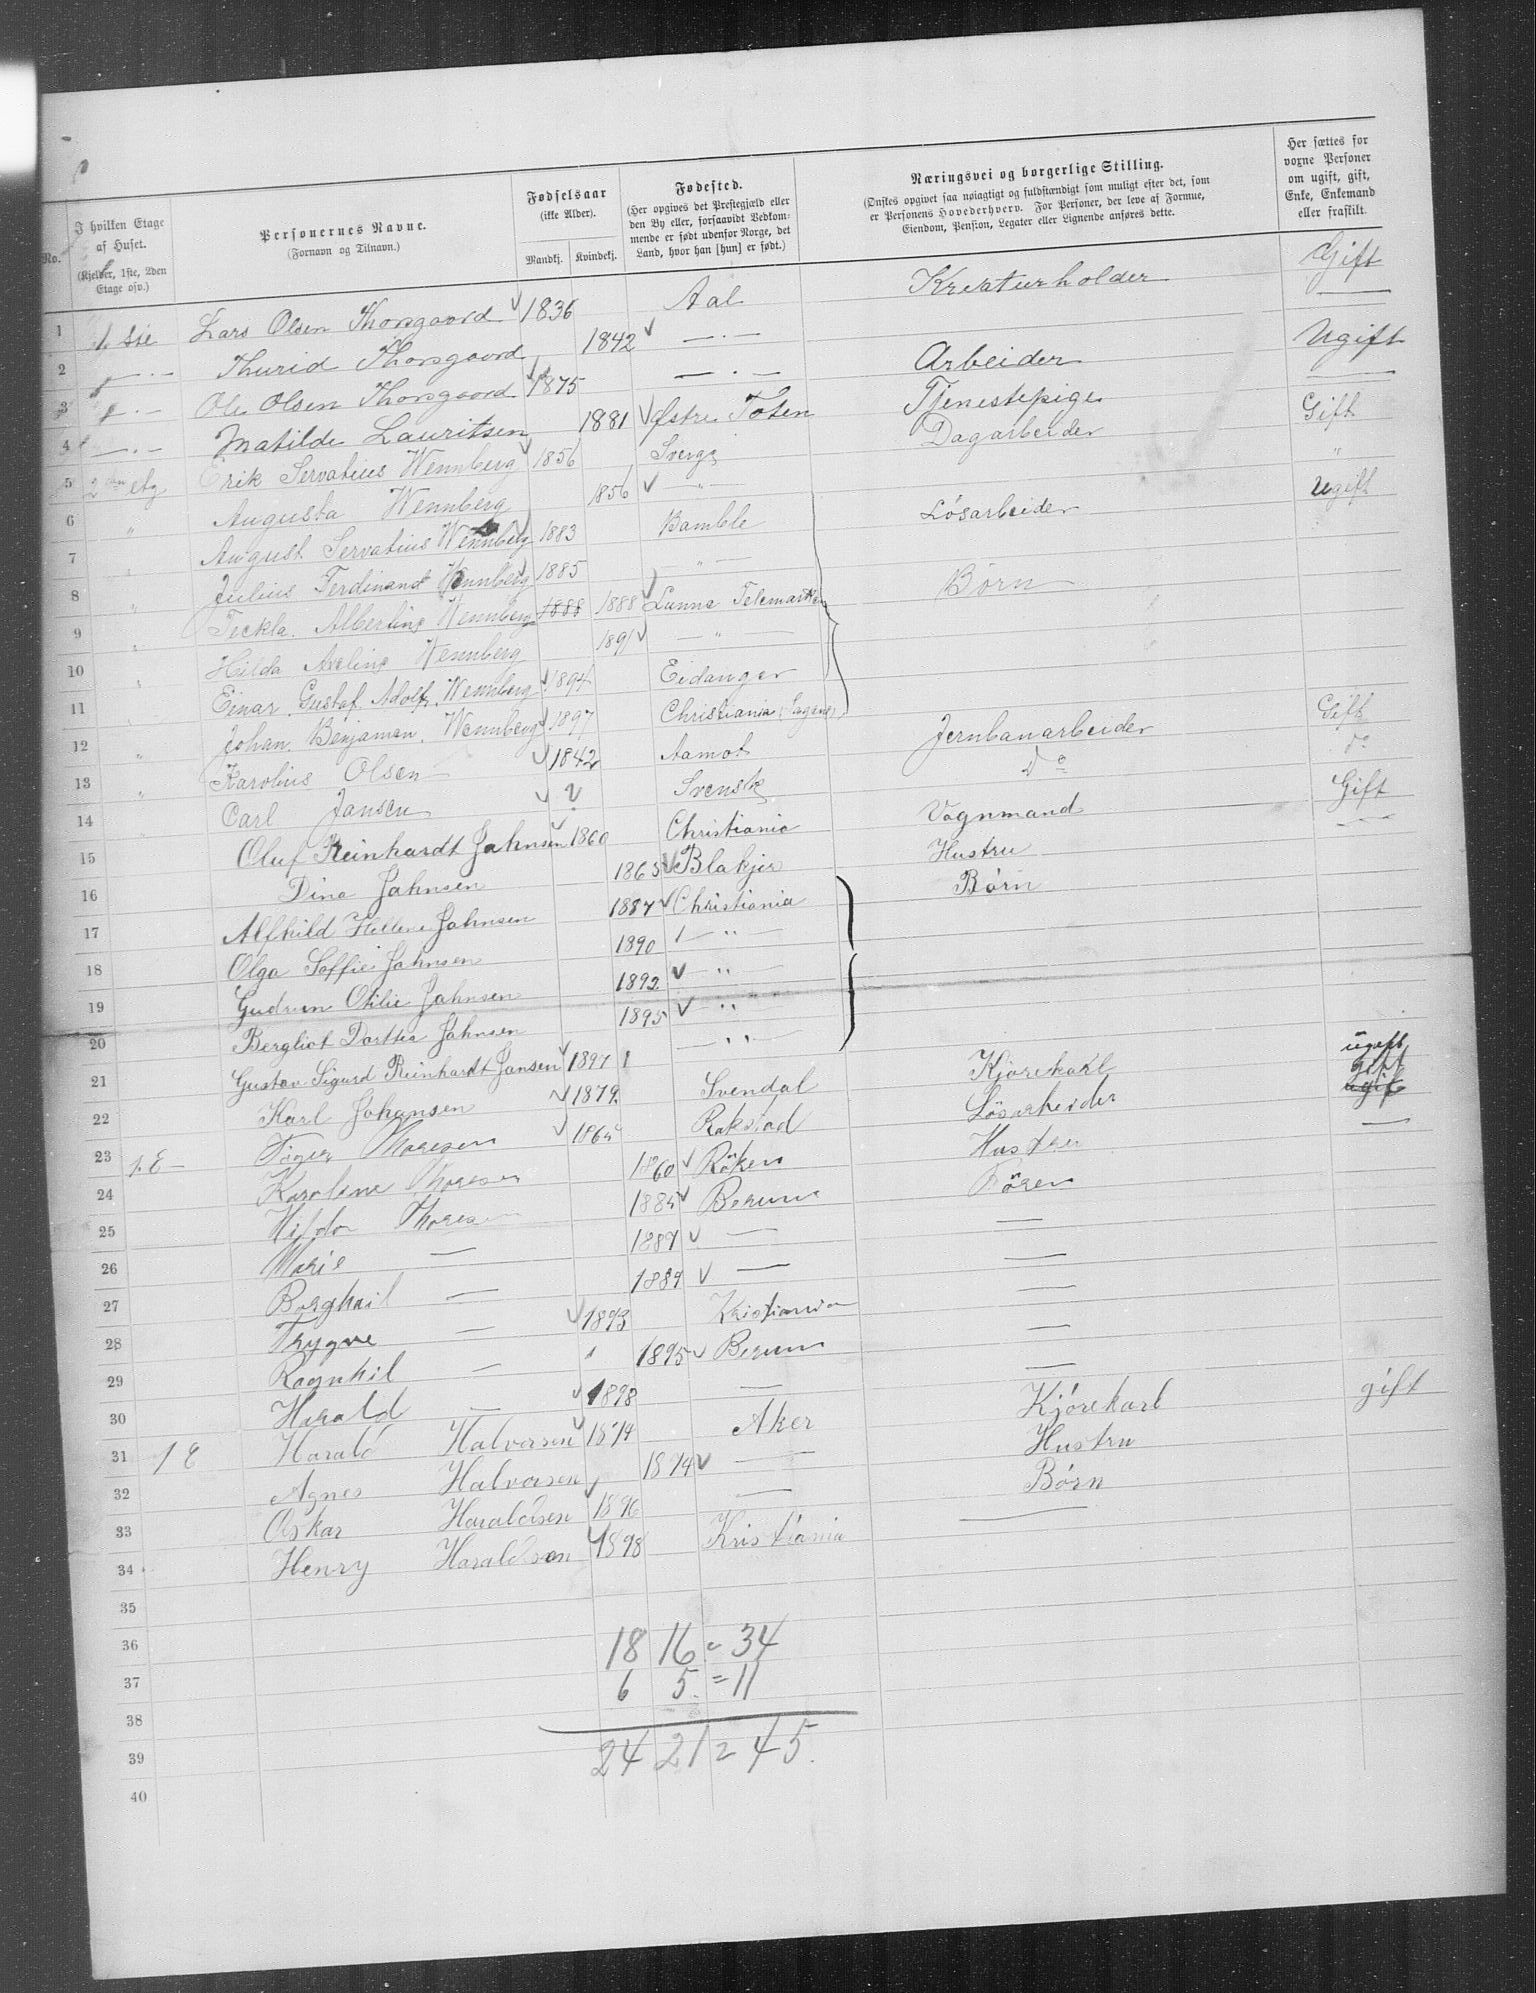 No. | I hvilken Etage af Huset. (Kjelder, 1ste, 2den Etage osv.) | Personernes Navne. (Fornavn og Tilnavn.) | Fødselsaar (ikke Alder). Mandkj. Kvindekj. | Fødested. (Her opgives det Prestegjæld eller den By eller, forsaavidt Vedkommende er født udenfor Norge, det Land, hvor han [hun] er født.) | Næringsvei og borgerlige Stilling. (Ønskes opgivet saa nøiagtigt og fuldstændigt som muligt efter det, som er Personens Hovederhverv. For Personer, der leve af Formue, Eiendom, Pension, Legater eller Lignende anføres dette. | Her sættes for voxne Personer om ugift, gift, Enke, Enkemand eller fraskilt.
1 1 ste Lars Olsen Thorsgaard 1836 Aal Kreaturholder Gift
2 — . — Thurid Thorsgaard 1842 — . — —
3 — . — Ole Olsen Thorsgaard 1875 — . — Arbeider Ugift
4 — . — Matilde Lauritsen 1881 Østre Toten Tjenestepige —
5 2den etg Erik Servatius Wennberg 1856 Sverge Dagarbeider Gift
6 " Augusta Wennberg 1856 " "
7 " August Servatius Wennberg 1883 Bamble Løsarbeider Ugift
8 " Julius Ferdinand Wennberg 1885 "
9 " Teckla Albertine Wennberg 1888 1888 Lunne Telemarken Børn
10 " Hilda Aveline Wennberg 1891 — " —
11 " Einar Gustaf Adolf Wennberg 1894 Eidanger
12 " Johan Benjamen Wennberg 1897 Christiania (Sagene)
13 " Karolius Olsen 1842 Aamot Jernbanarbeider Gift
14 Carl Jansen ? Svensk Do do
15 Oluf Reinhardt Jahnsen 1860 Christiania Vognmand Gift
16 Dina Jahnsen 1865 Blakjer Hustru
17 Alfhild Hellene Jahnsen 1887 Christiania Børn
18 Olga Soffie Jahnsen 1890 "
19 Gudrun Otilie Jahnsen 1892 "
20 Bergliot Dorttea Jahnsen 1895 "
21 Gustav Sigurd Reinhardt Jansen 1897 "
22 Karl Johansen 1879 Svendal Kjørekarl ugift
23 1. E — Thoresen 1864 Rakstad Løsarbeider gift ugift
24 Karoline Thoresen 1860 Røken Hustru —
25 Hilda Thoresen 1884 Berum Børen
26 Marie — 1887 — —
27 Borghil — 1889 — —
28 Trygve — 1893 Kristiania —
29 Ragnhil — 1895 Berum —
30 Harald — 1898 — —
31 1 E Harald Halvorsen 1874 Aker Kjørekarl gift
32 Agnes Halvorsen 1874 — Hustru
33 Oskar Haraldsen 1896 — Børn
34 Henry Haraldsen 1898 Kristiania —
35
36 18 16 = 34
37 6 5 = 11
38
39 24 21 = 45.
40